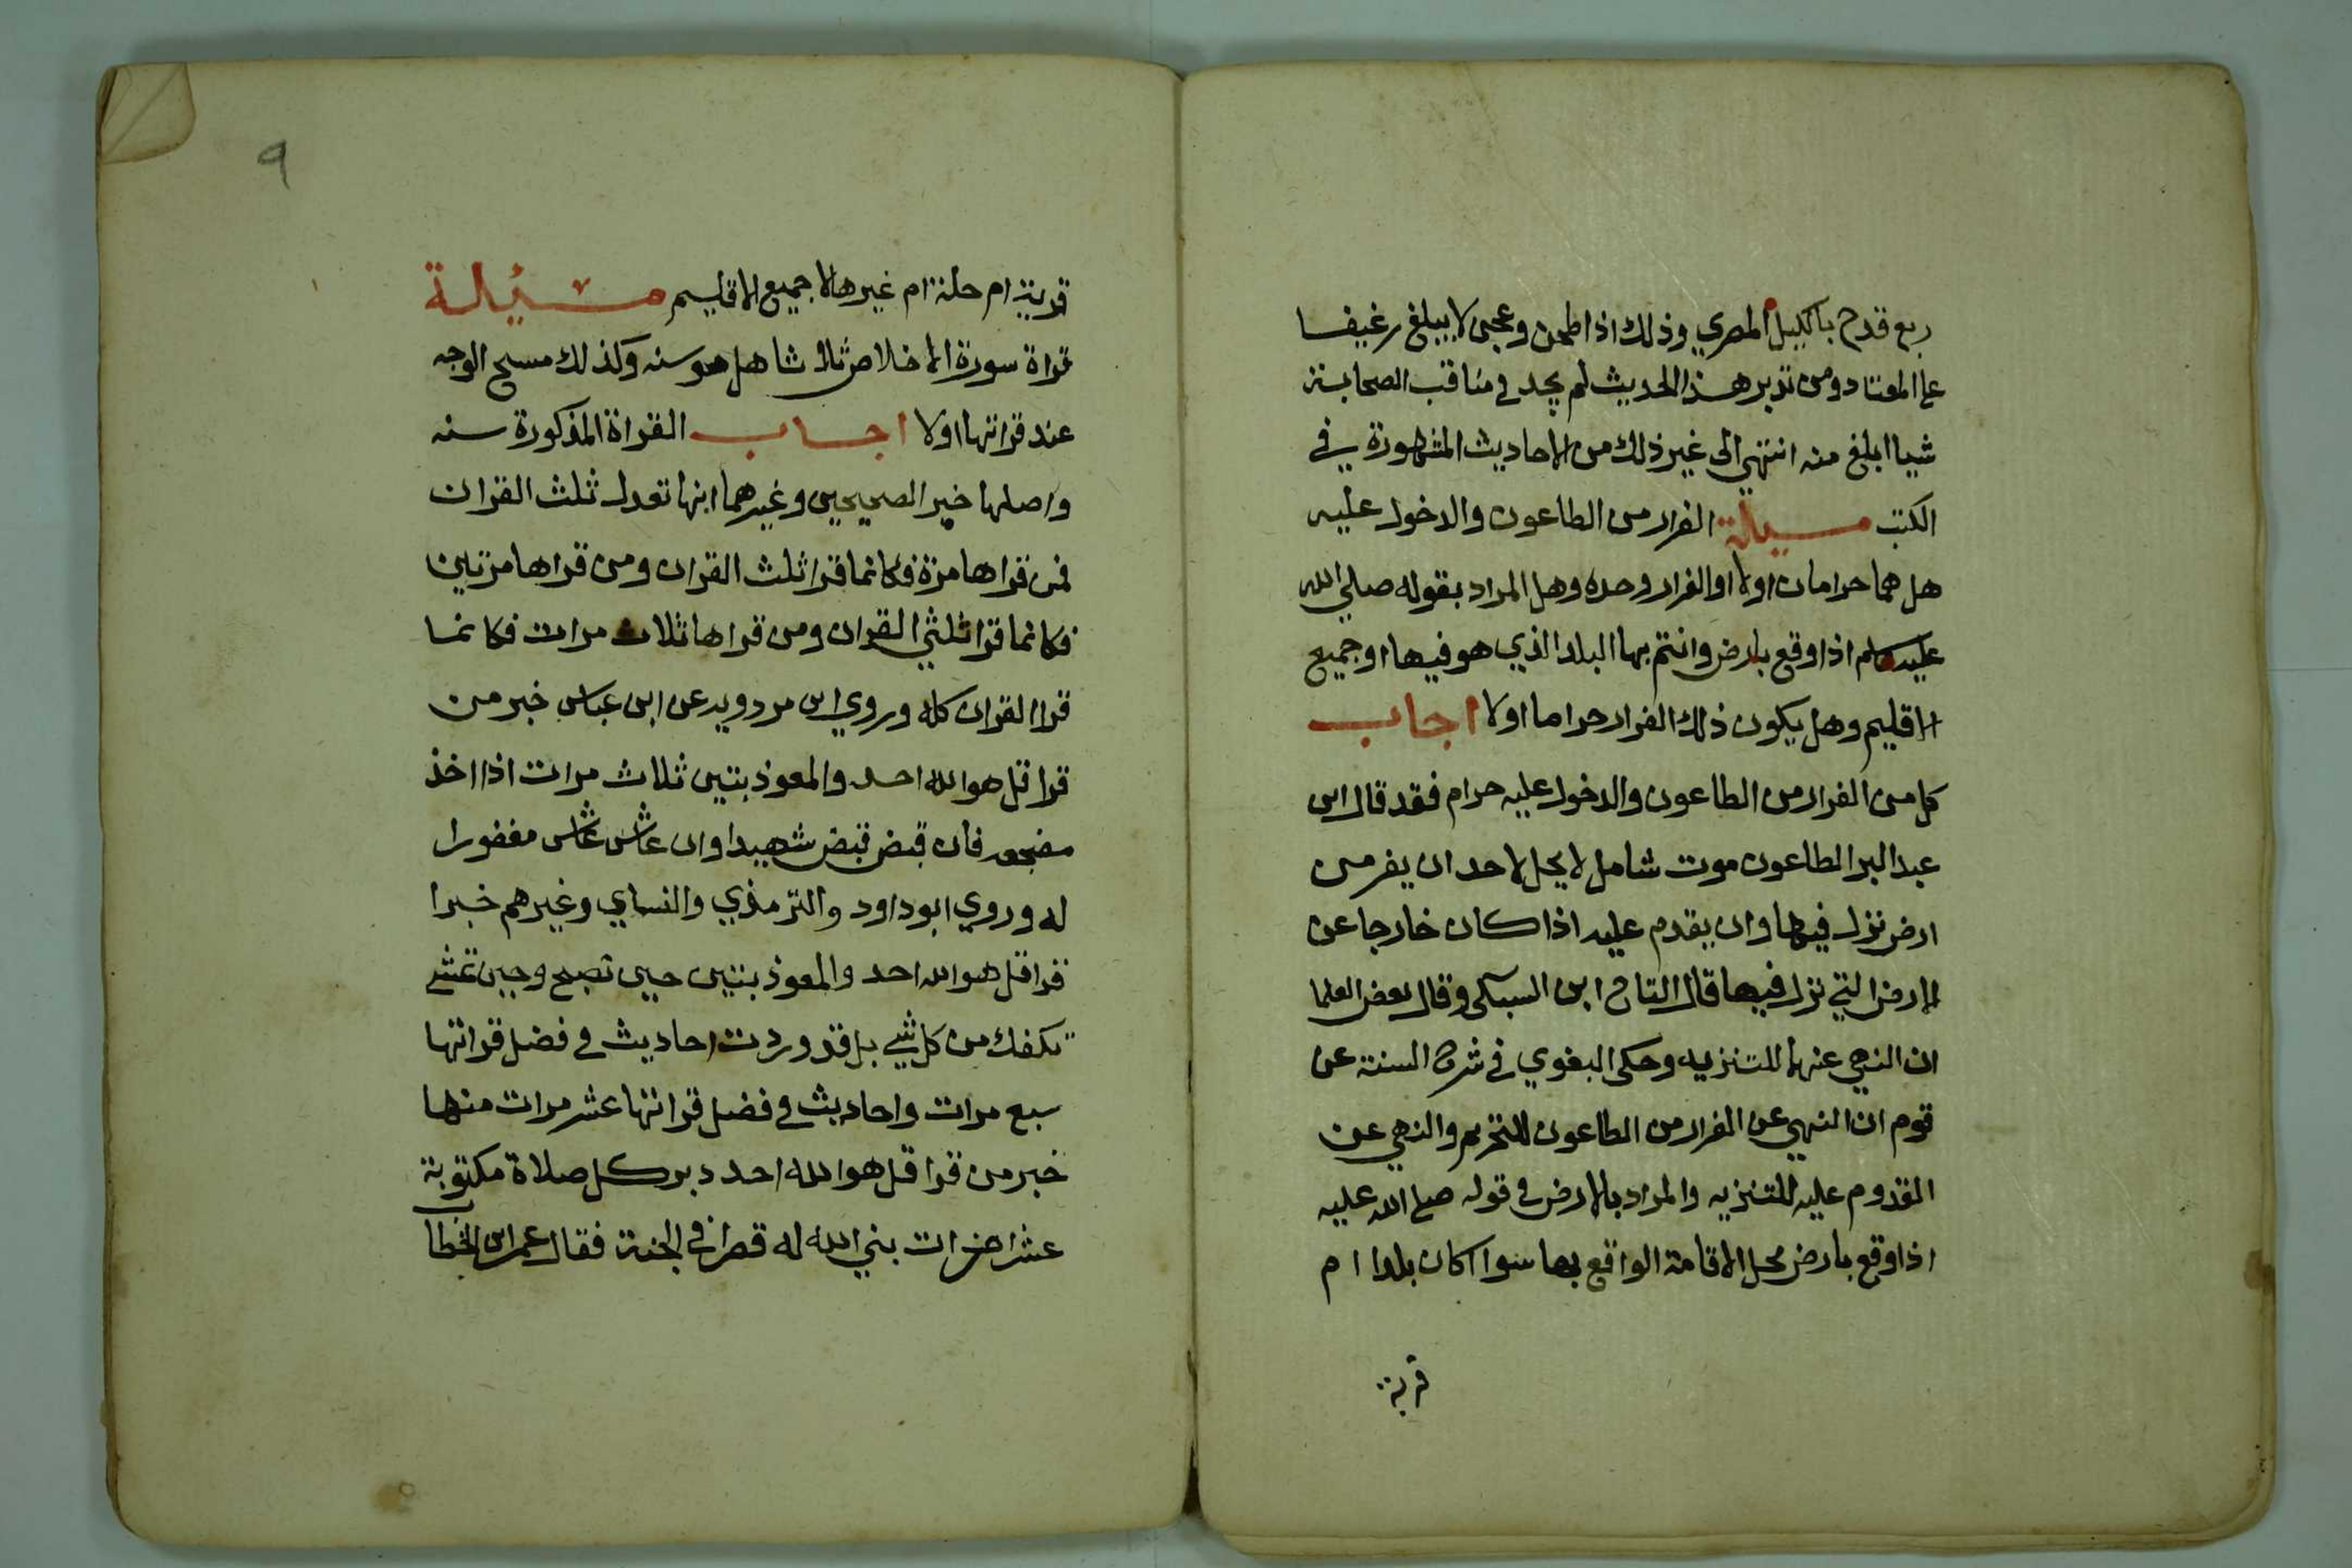 ربع قدح بالكيل المصري وذلك اذا طحن وعجن لا يبلغ رغيفا
على المعتاد ومن تدبر هذا الحديث لم يجد في مناقب الصحابة
شيا ابلغ منه انتهى الى غير ذلك من الاحاديث المشهورة في
الكتب مسيلة الفرار من الطاعون والدخول عليه
هل هما حرامان اولا او الفرار وحده وهل المراد بقوله صلي الله
عليه وسلم اذا وقع بارض وانتم بها البلد الذي هو فيها او جميع
الاقليم وهل يكون ذلك الفرار حراما اولا اجاب
كل من الفرار من الطاعون والدخول عليه حرام فقد قال ابن
عبد البر الطاعون موت شامل لا يحل لاحد ان يفر من
ارض نزل فيها وان يقدم عليه اذا كان خارجا عن
الارض التي نزل فيها قال التاج ابن السبكي وقال بعض العلما
ان النهي عنها للتنزيه وحكى البغوي في شرح السنة عن
قوم ان النهي عن الفرار من الطاعون للتحريم والنهي عن
القدوم عليه للتنزيه والمراد بالارض في قوله صلى الله عليه
اذا وقع بارض محل الاقامة الواقع بها سوا اكان بلدا ام
قرية
٩
قرية ام حلة ام غيرها لا جميع الاقليم مسيلة
قراة سورة الاخلاص ثلاثا هل هو سنه وكذلك مسح الوجه
عند قراتها اولا اجاب القراة المذكورة سنه
واصلها خبر الصحيحين وغيرهما انها تعدل ثلث القران
فمن قراها مرة فكانما قرا ثلث القران ومن قراها مرتين
فكانما قرا ثلثي القران ومن قراها ثلاث مرات فكانما
قرا القران كله وروي ابن مردويه عن ابن عباس خبر من
قرا قل هو الله احد والمعوذتين ثلاث مرات اذا اخذ
مضجعه فان قبض قبض شهيدا وان عاش عاش مغفورا
له وروي ابو داود والترمذي والنساي وغيرهم خبرا
قرا قل هو الله احد والمعوذتين حين تصبح وحين تمسي
تكفك من كل شي بل قد وردت احاديث في فضل قراتها
سبع مرات واحاديث في فضل قراتها عشر مرات منها
خبر من قرا قل هو الله احد دبر كل صلاة مكتوبة
عشر مرات بني الله له قصرا في الجنة فقال عمر ابن الخطاب